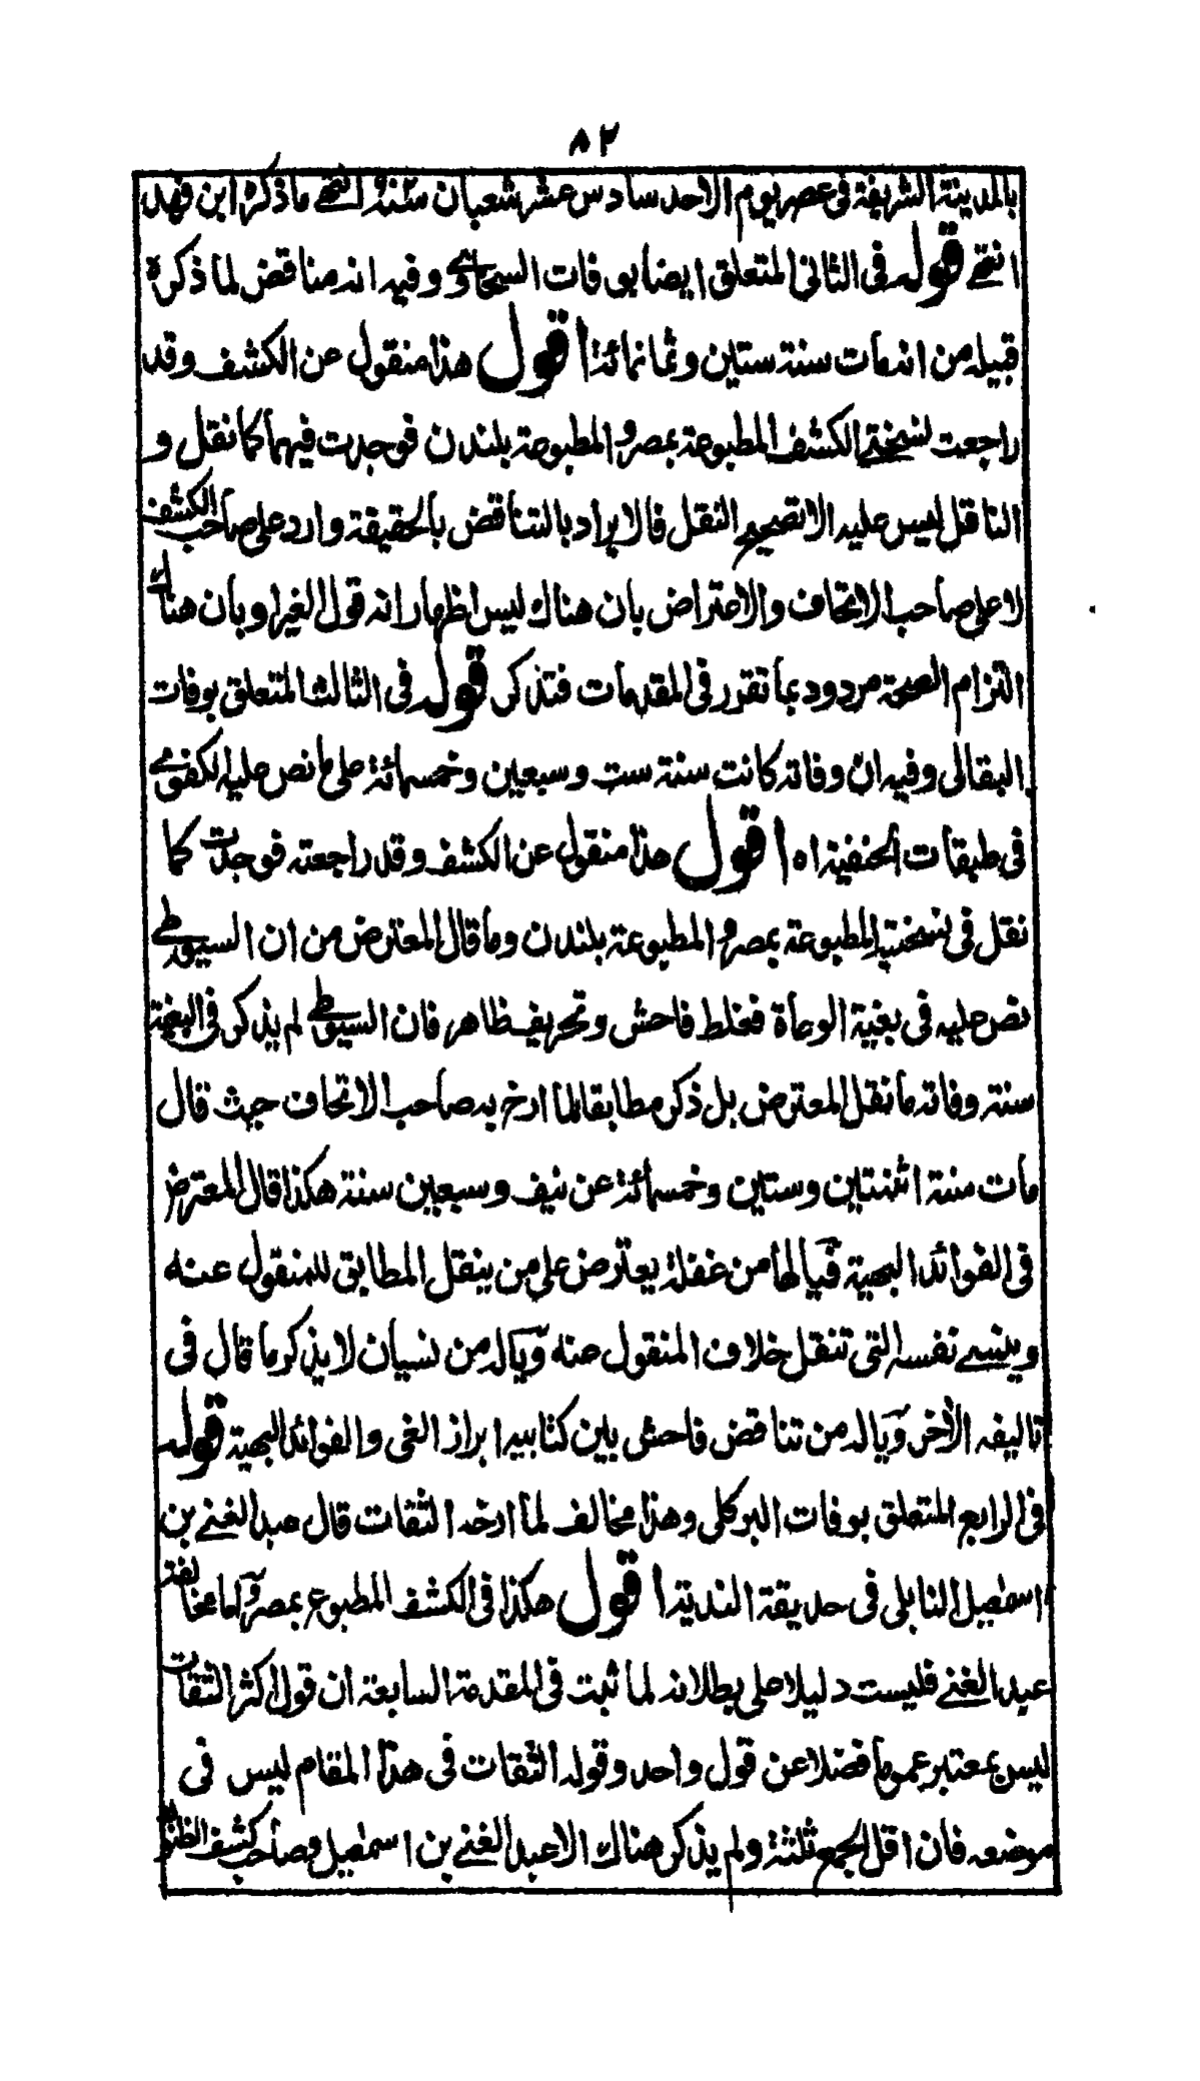 ٨٢
بالمدينة الشريفة فى عصر يوم الاحد سادس عشر شعبان سنة انتهى ما ذكره ابن فهد
انتهى قوله فى الثانى المتعلق ايضا بوفات السخاوى وفيه انه مناقض لما ذكره
قبيله من انه مات سنة ستين وثمانمائة اقول هذا منقول عن الكشف وقد
راجعت نسختى الكشف المطبوعة بمصر والمطبوعة بلندن فوجدت فيهما كما نقل و
الناقل ليس عليه الا تصحيح النقل فالايراد بالتناقض بالحقيقة وارد على صاحب الكشف
لا على صاحب الاتحاف والاعتراض بان هناك ليس اظهار انه قول الغير او بان هناك
التزام الصحة مردود بما تقرر فى المقدمات فتذكر قوله فى الثالث المتعلق بوفات
البقالى وفيه ان وفاته كانت سنة ست وسبعين وخمسمائة على ما نص عليه الكفوى
فى طبقات الحنفية اه اقول هذا منقول عن الكشف وقد راجعته فوجدت كما
نقل فى نسختيه المطبوعة بمصر والمطبوعة بلندن وما قال المعترض من ان السيوطى
نص عليه فى بغية الوعاة فغلط فاحش وتحريف ظاهر فان السيوطى لم يذكر فى البغية
سنة وفاته ما نقل المعترض بل ذكر مطابقا لما ارخ به صاحب الاتحاف حيث قال
مات سنة اثنتين وستين وخمسمائة عن نيف وسبعين سنة هكذا قال المعترض
فى الفوائد البهية فيا لها من غفلة يعترض على من ينقل المطابق للمنقول عنه
وينسى نفسه التى تنقل خلاف المنقول عنه ويا له من نسيان لا يذكر ما قال فى
تاليفه الآخر ويا له من تناقض فاحش بين كتابيه ابراز الغى والفوائد البهية قوله
فى الرابع المتعلق بوفات البركلى وهذا مخالف لما ارخه الثقات قال عبد الغنى بن
اسمعيل النابلى فى حديقة الندية اقول هكذا فى الكشف المطبوع بمصر واما مخالفة
عبد الغنى فليست دليلا على بطلانه لما ثبت فى المقدمة السابعة ان قول اكثر الثقات
ليس بمعتبر عموما فضلا عن قول واحد وقوله الثقات فى هذا المقام ليس فى
موضعه فان اقل الجمع ثلثة ولم يذكر هناك الا عبد الغنى بن اسمعيل وصاحب كشف الظنون